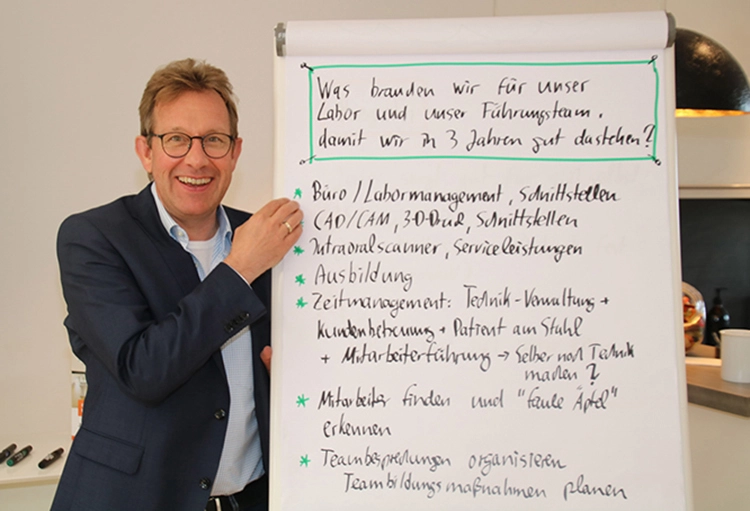 Was brauchen wir für unser
Labor und unser Führungsteam,
damit wir in 3 Jahren gut dastehen?
* Büro/Labormanagement, Schnittstellen
* CAD/CAM, 3-D-Druck, Schnittstellen
* Intraoralscanner, Serviceleistungen
* Ausbildung
* Zeitmanagement: Technik-Verwaltung +
Kundenbetreuung + Patient am Stuhl
+ Mitarbeiterführung → Selber noch Technik
machen?
* Mitarbeiter finden und "faule Äpfel"
erkennen
* Teambesprechungen organisieren
Teambildungsmaßnahmen planen